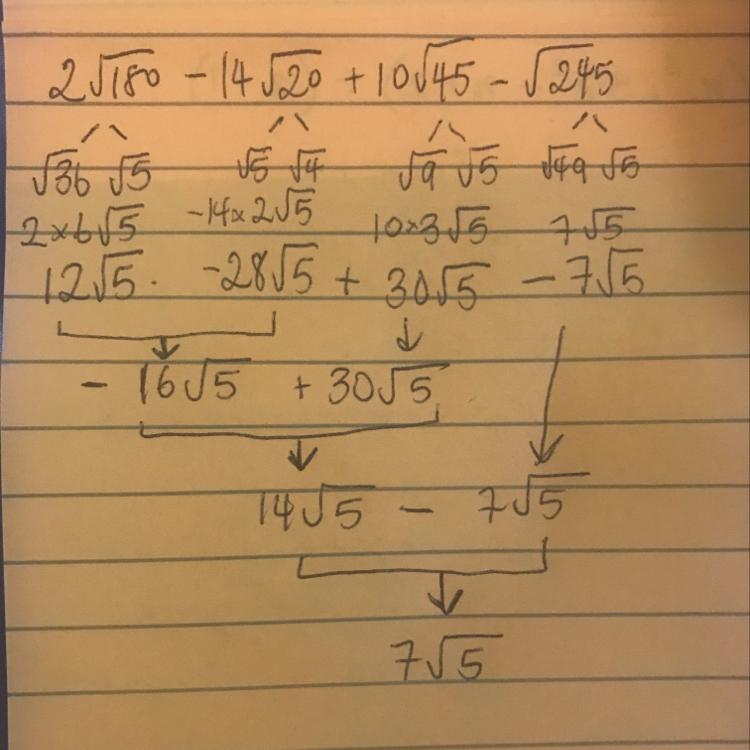 2√180 - 14√20 + 10√45 - √245
√36 √5 √5 √4 √9 √5 √49 √5
2×6√5 -14×2√5 10×3√5 7√5
12√5 -28√5 + 30√5 - 7√5
- 16√5 + 30√5
14√5 - 7√5
7√5